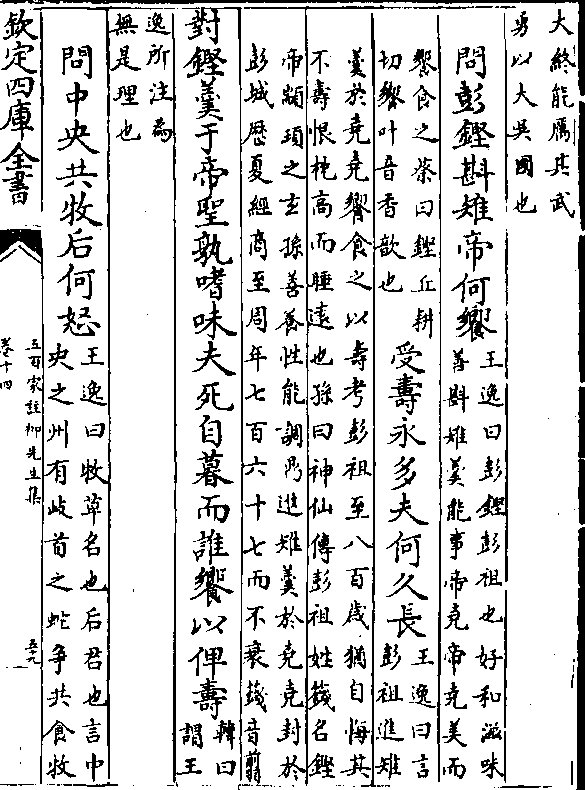 大終能厲其武
勇以大吳國也
問彭鏗斟雉帝何饗王逸曰彭鏗彭祖也好和滋味
善斟雉羹能事帝堯帝堯美而
饗食之蔡曰鏗丘耕
切饗叶音香歆也
受壽永多夫何久長王逸曰言
彭祖進雉
羹於堯堯饗食之以壽考彭祖至八百歲猶自悔其
不壽恨枕高而唾遠也孫曰神仙傳彭祖姓籛名鏗
帝顓頊之玄孫善養性能調鼎進雉羹於堯堯封於
彭城歷夏經商至周年七百六十七而不衰籛音翦
對鏗羹于帝聖孰嗜味夫死自暮而誰饗以俾壽韓曰
謂王
逸所注為
無是理也
問中央共牧后何怒王逸曰牧草名也后君也言中
央之州有岐首之蛇爭共食牧
欽定四庫全書
五百家註柳先生集
卷十四
五九